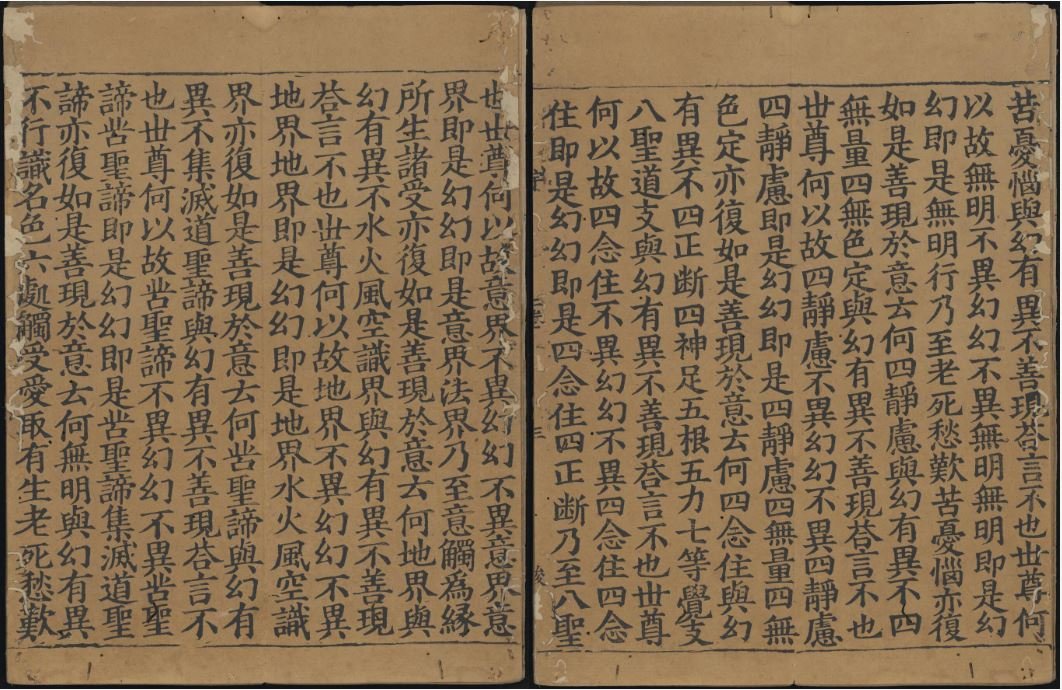 也世尊何以故意界不異幻幻不異意界意
界即是幻幻即是意界法界乃至意觸爲緣
所生諸受亦復如是善現於意云何地界與
幻有異不水火風空識界與幻有異不善現
荅言不也世尊何以故地界不異幻幻不異
地界地界即是幻幻即是地界水火風空識
界亦復如是善現於意云何苦聖諦與幻有
異不集滅道聖諦與幻有異不善現荅言不
也世尊何以故苦聖諦不異幻幻不異苦聖
諦苦聖諦即是幻幻即是苦聖諦集滅道聖
諦亦復如是善現於意云何無明與幻有異
不行識名色六處觸受愛取有生老死愁歎
苦憂惱與幻有異不善現荅言不也世尊何
以故無明不異幻幻不異無明無明即是幻
幻即是無明行乃至老死愁歎苦憂惱亦復
如是善現於意云何四靜慮與幻有異不四
無量四無色定與幻有異不善現荅言不也
世尊何以故四靜慮不異幻幻不異四靜慮
四靜慮即是幻幻即是四靜慮四無量四無
色定亦復如是善現於意云何四念住與幻
有異不四正断四神足五根五力七等覺支
八聖道支與幻有異不善現荅言不也世尊
何以故四念住不異幻幻不異四念住四念
住即是幻幻即是四念住四正断乃至八聖